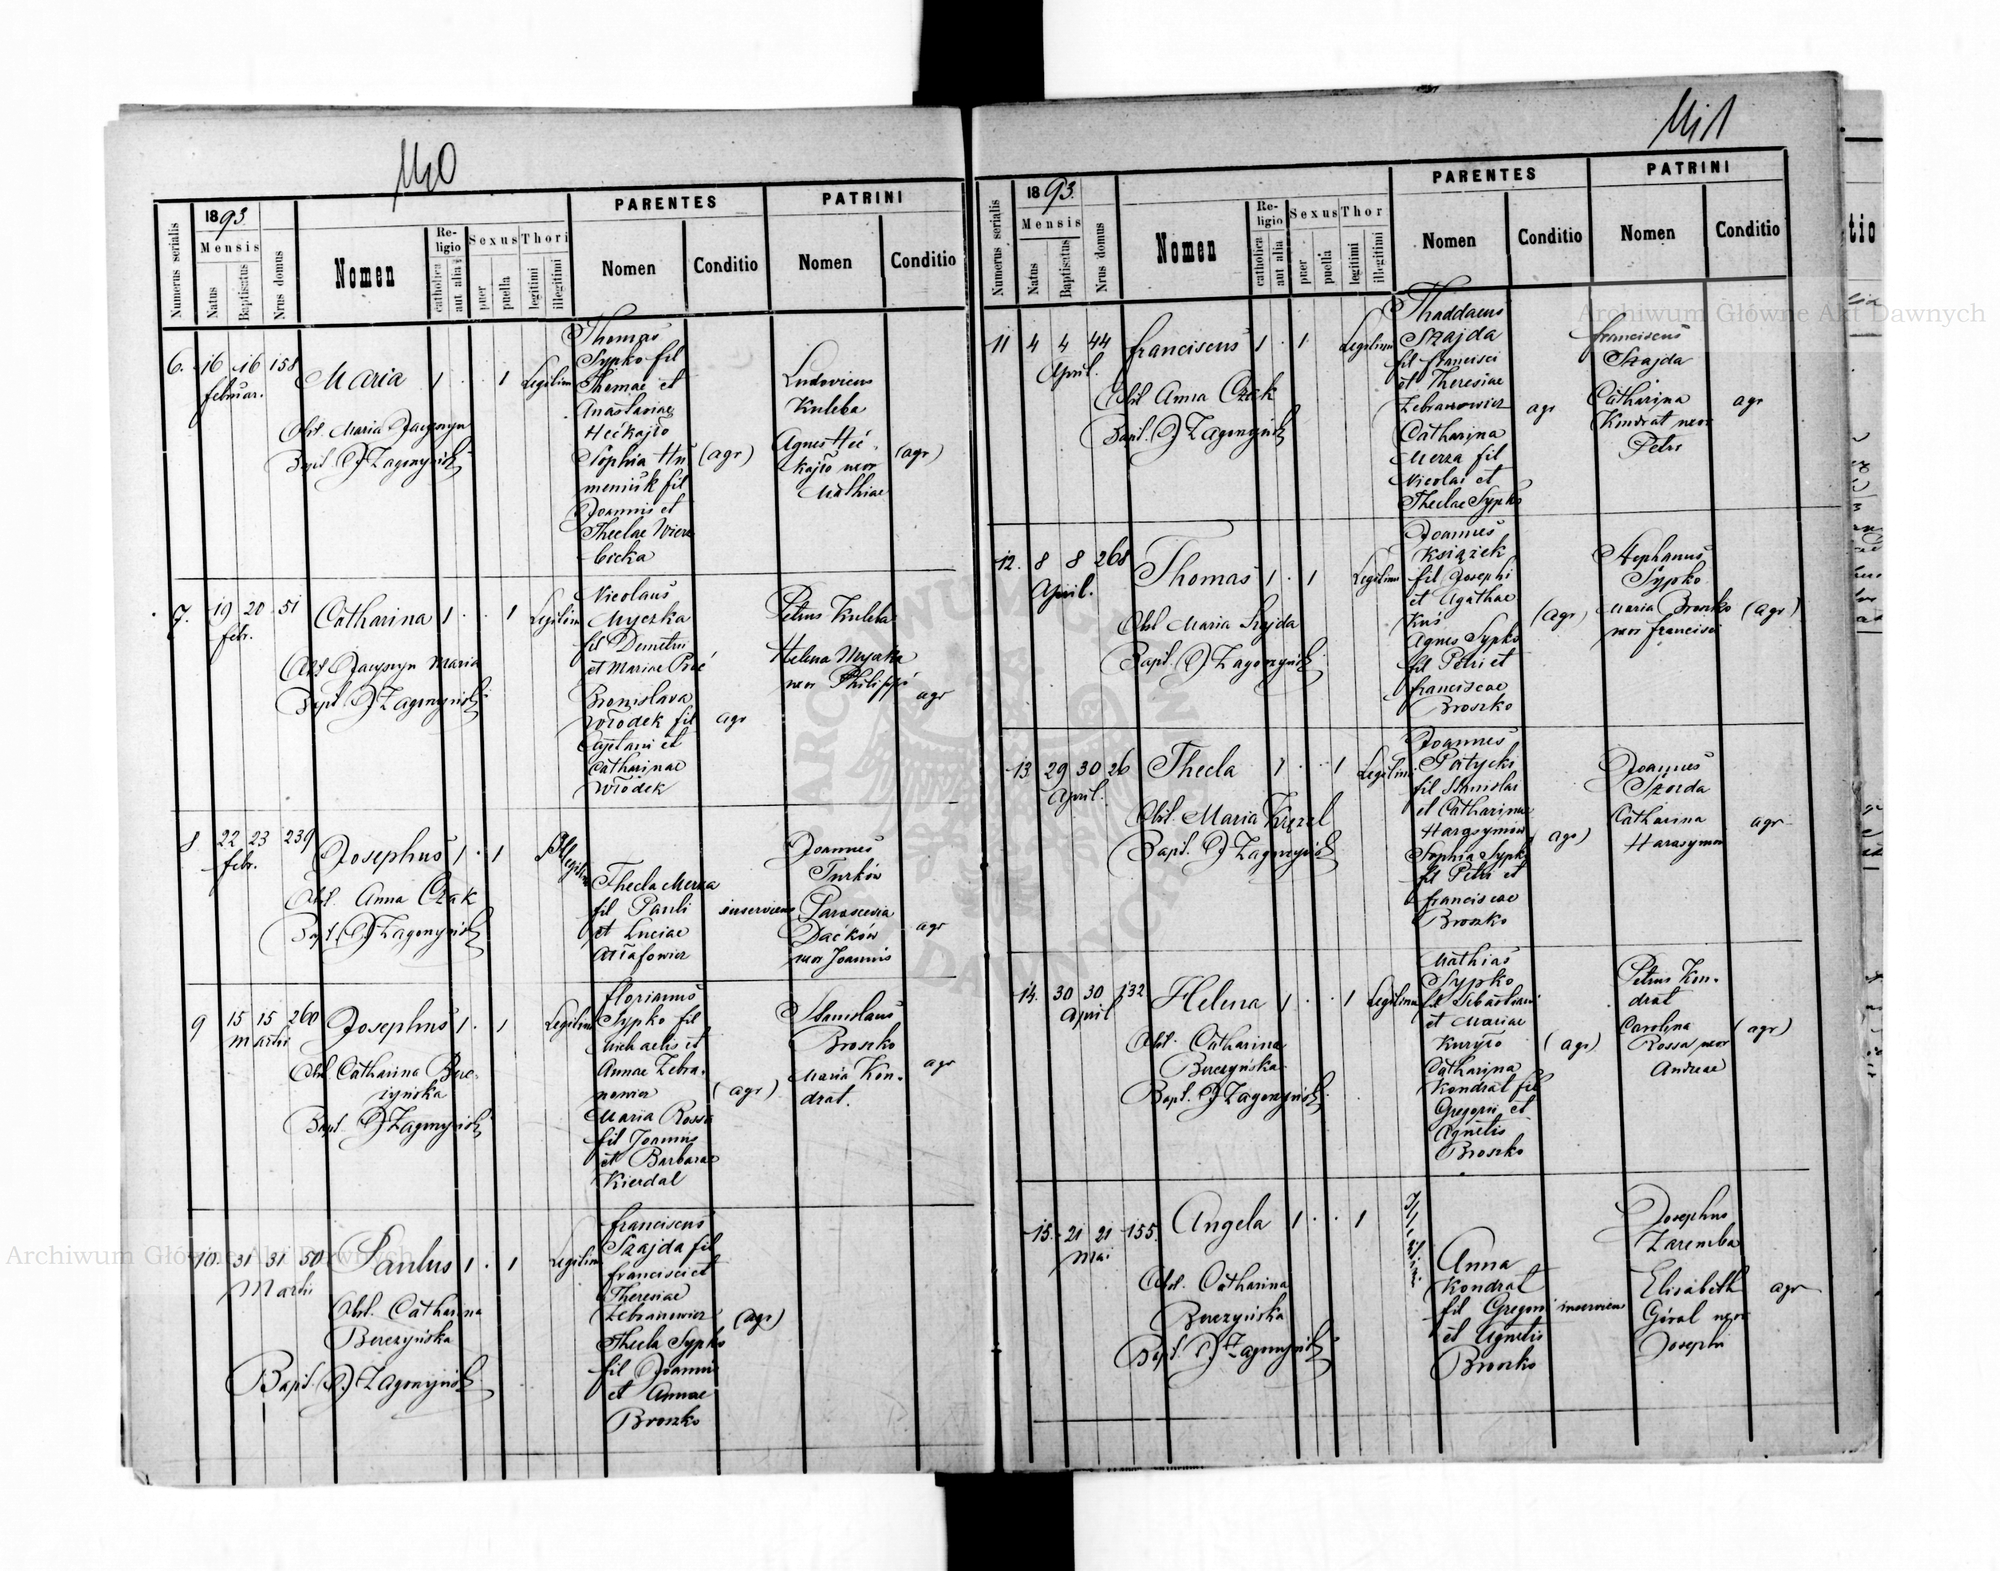 140
1893
Numerus serialis
Mensis
Natus
Baptisatus
Nrus domus
Nomen
Religio
catholica
aut alia
Sexus
puer
puella
Thori
legitimi
illegitimi
PARENTES
Nomen
Conditio
PATRINI
Nomen
Conditio
6. 16 16 158 Maria 1 1 Legitim
februar.
Obst. Maria
Bapt.
Thomas
Sypko fil
Thomae et
Anastasiae
Sophia
fil
Joannis et
Theclae
(agr)
Ludovicus
Kuleba
Agnes
uxor
Mathiae
(agr)
7. 19 20 51 Catharina 1 1 Legitim
febr.
Obst Maria
Bapt
Nicolaus
Myczka
fil Demetrii
et Mariae
Bronislava
Włodek fil
Cajetani et
Catharinae
Włodek
agr
Petrus Kuleba
Helena
uxor Philippi
agr
8 22 23 239 Josephus 1 1 Illegitim
febr.
Obst. Anna Czak
Bapt
Thecla Merza
fil Pauli
et Luciae
inserviens
Joannes
Turków
Parascevia
Daćków
uxor Joannis
agr
9 15 15 260 Josephus 1 1 Legitim
Martii
Obst. Catharina Bere-
zyńska
Bapt
Florianus
Sypko fil
Michaelis et
Annae Zebra-
nowicz
Maria Rossa
fil Joannis
et Barbarae
Kierdal
(agr)
Stanislaus
Broszko
Maria Kon-
drat.
agr
10. 31 31 50 Paulus 1 1 Legitim
Martii
Obst. Catharina
Berezyńska
Bapt.
Franciscus
Szajda fil
Francisci et
Theresiae
Zebranowicz
Thecla Sypko
fil Joannis
et Annae
Broszko
(agr)
141
1893
Numerus serialis
Mensis
Natus
Baptisatus
Nrus domus
Nomen
Religio
catholica
aut alia
Sexus
puer
puella
Thor
legitimi
illegitimi
PARENTES
Nomen
Conditio
PATRINI
Nomen
Conditio
11 4 4 44 Franciscus 1 1 Legitim
April.
Obst Anna Czak
Bapt.
Thaddaeus
Szajda
fil Francisci
et Theresiae
Zebranowicz
Catharina
Merza fil
Nicolai et
Theclae Sypko
agr
Franciscus
Szajda
Catharina
Kondrat uxor
Petri
agr
12. 8 8 268 Thomas 1 1 Legitim
April.
Obst Maria Szajda
Bapt.
Joannes
Książek
fil Josephi
et Agathae
Kuś
Agnes Sypko
fil Petri et
Franciscae
Broszko
(agr)
Stephanus
Sypko
Maria Broszko
uxor Francisci
(agr)
13 29 30 26 Thecla 1 1 Legitim
April.
Obst. Maria
Bapt.
Joannes
fil Stanislai
et Catharinae
Sophia Sypko
fil Petri et
Franciscae
Broszko
agr)
Joannes
Catharina
agr
14. 30 30 132 Helena 1 1 Legitim
April
Obst. Catharina
Berezyńska
Bapt.
Mathias
Sypko
fil Sebastiani
et Mariae
Kuryło
Catharina
Kondrat fil
Gregorii et
Agnetis
Broszko
(agr)
Petrus Kon-
drat
Carolina
Rossa uxor
Andreae
(agr)
15. 21 21 155 Angela 1 1 Illegitim
Mai
Obst. Catharina
Berezyńska
Bapt.
Anna
Kondrat
fil Gregorii
et Agnetis
Broszko
inserviens
Josephus
Zaremba
Elisabeth
Góral uxor
Josephi
agr
Archiwum Główne Akt Dawnych
Archiwum Główne Akt Dawnych